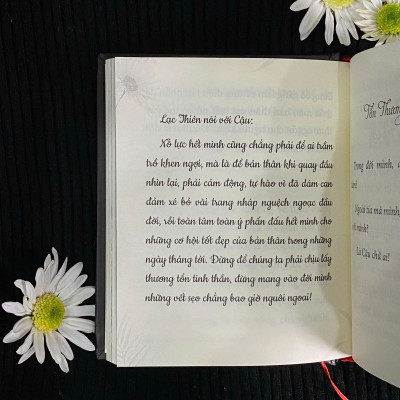 Lạc Thiên nói với Cậu:
Nỗ lực hết mình cũng chẳng phải để ai trầm
trồ khen ngợi, mà là để bản thân khi quay đầu
nhìn lại, phải cảm động, tự hào vì đã dám can
đảm xé bỏ vài trang nháp nguệch ngoạc đầu
đời, rồi toàn tâm toàn ý phấn đấu hết mình cho
những cơ hội tốt đẹp của bản thân trong những
ngày tháng tới. Đừng để chúng ta phải chịu lấy
thương tổn tinh thần, đừng mang vào đời mình
những vết sẹo chẳng bao giờ nguôi ngoai!
Tổn Thương
Trong đời mình,
Ngoài ba má mình
Là Cậu chứ ai?